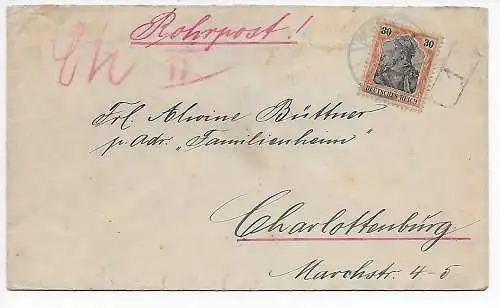 Rohrpost!
Ch II
30 30
DEUTSCHES REICH
Frl. Alwine Büttner
p. Adr. „Familienheim"
Charlottenburg
Marchstr. 4-5